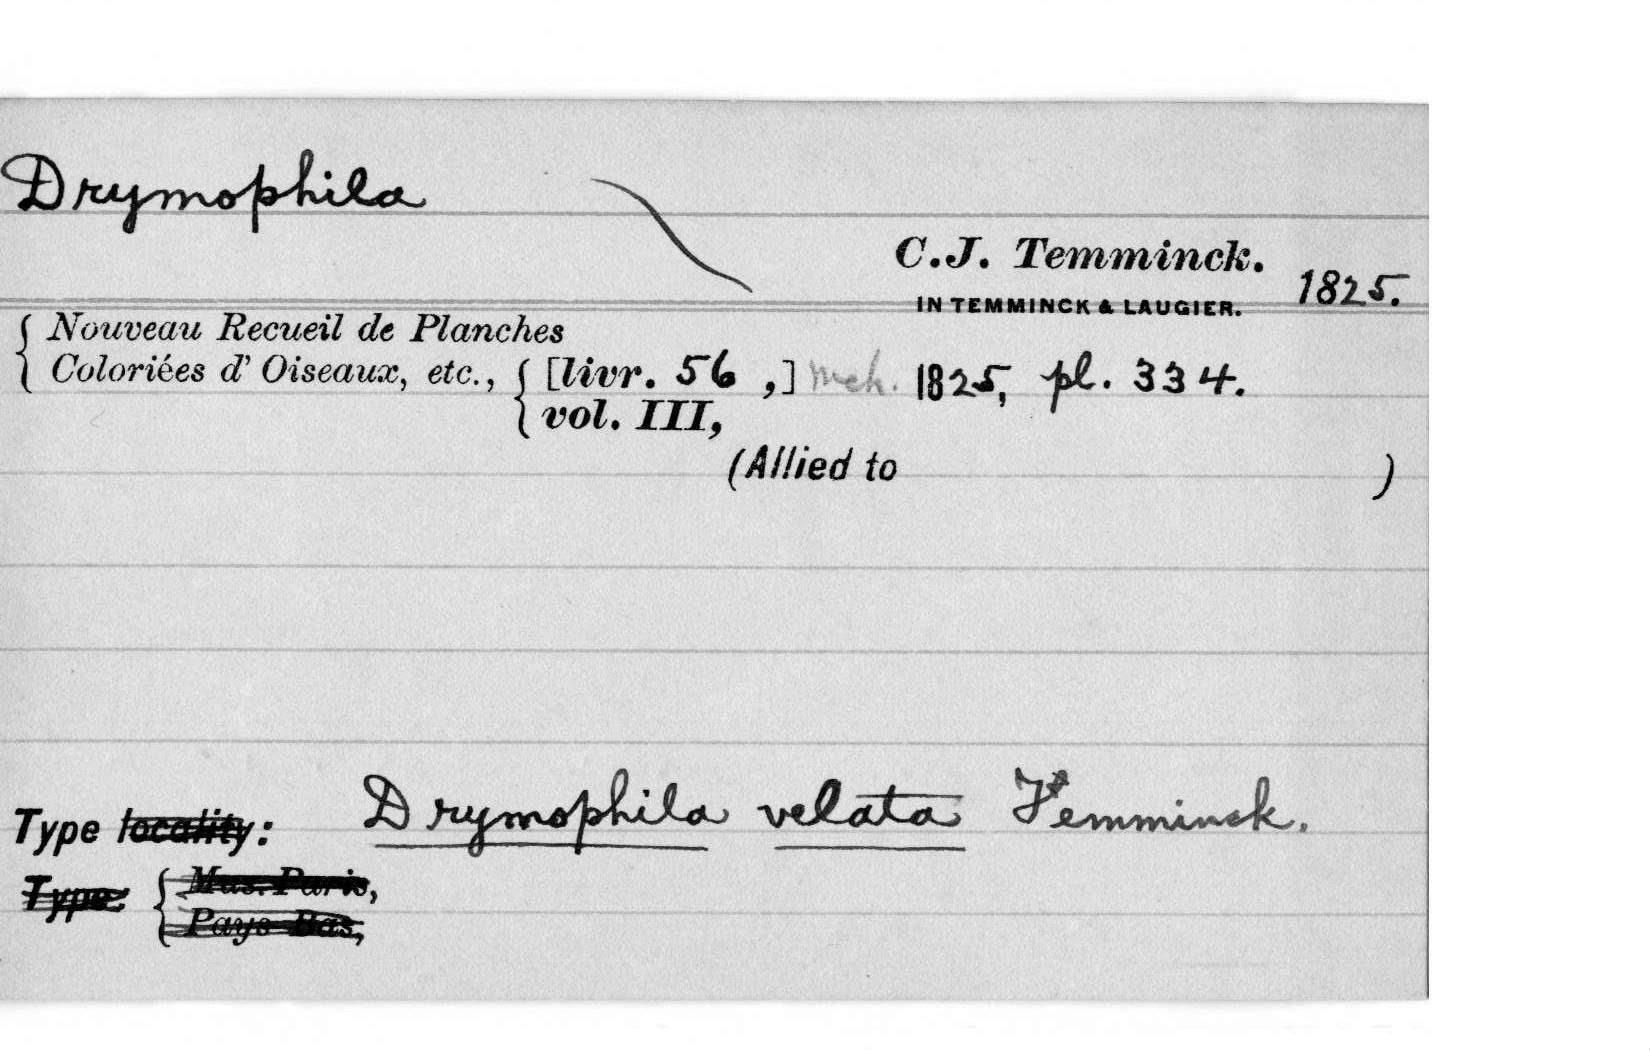 Drymophila
C.J. Temminck. 1825.
IN TEMMINCK & LAUGIER.
{ Nouveau Recueil de Planches
Coloriées d' Oiseaux, etc., { [livr. 56 ,] 1825, pl. 334.
vol. III,
(Allied to )
Type locality: Drymophila velata Temminck.
Type: { Mus. Paris,
Pays-Bas,